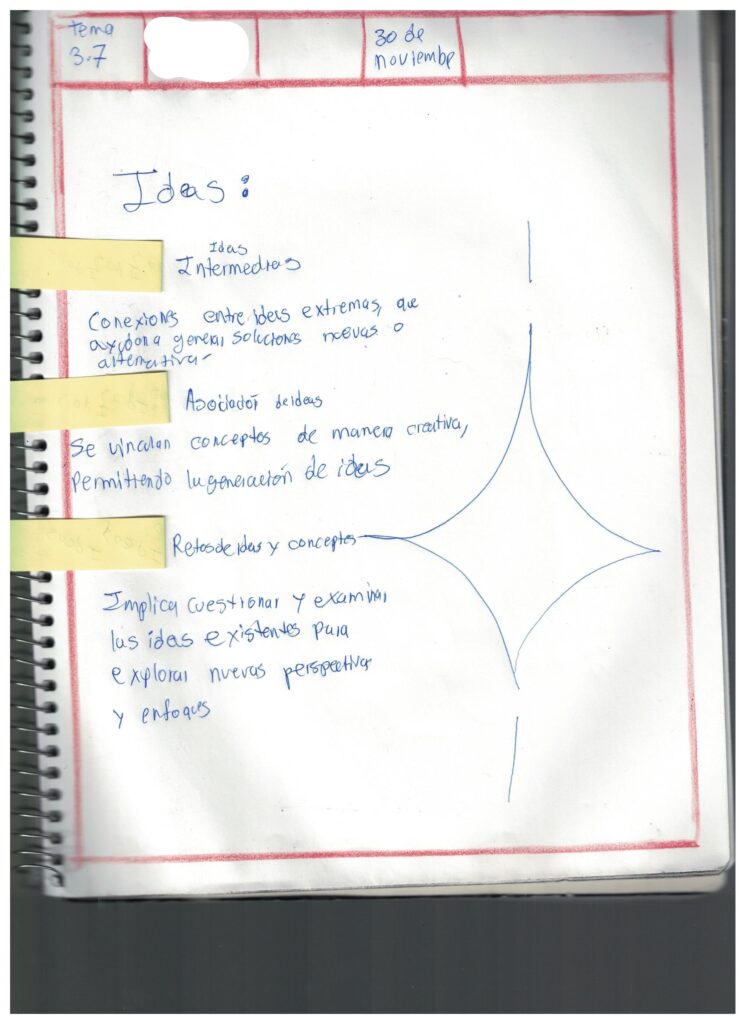 tema
3.7
30 de
noviembre
Ideas:
Idas
Intermedias
Conexiones entre ideas extremas, que
ayudan a generar soluciones nuevas o
alternativa-
Asociador de ideas
Se vinculan conceptos de manera creativa,
Permitiendo la generación de ideas
Retos de ideas y conceptos
Implica cuestionar y examinar
las ideas existentes para
explorar nuevas perspectivas
y enfoques